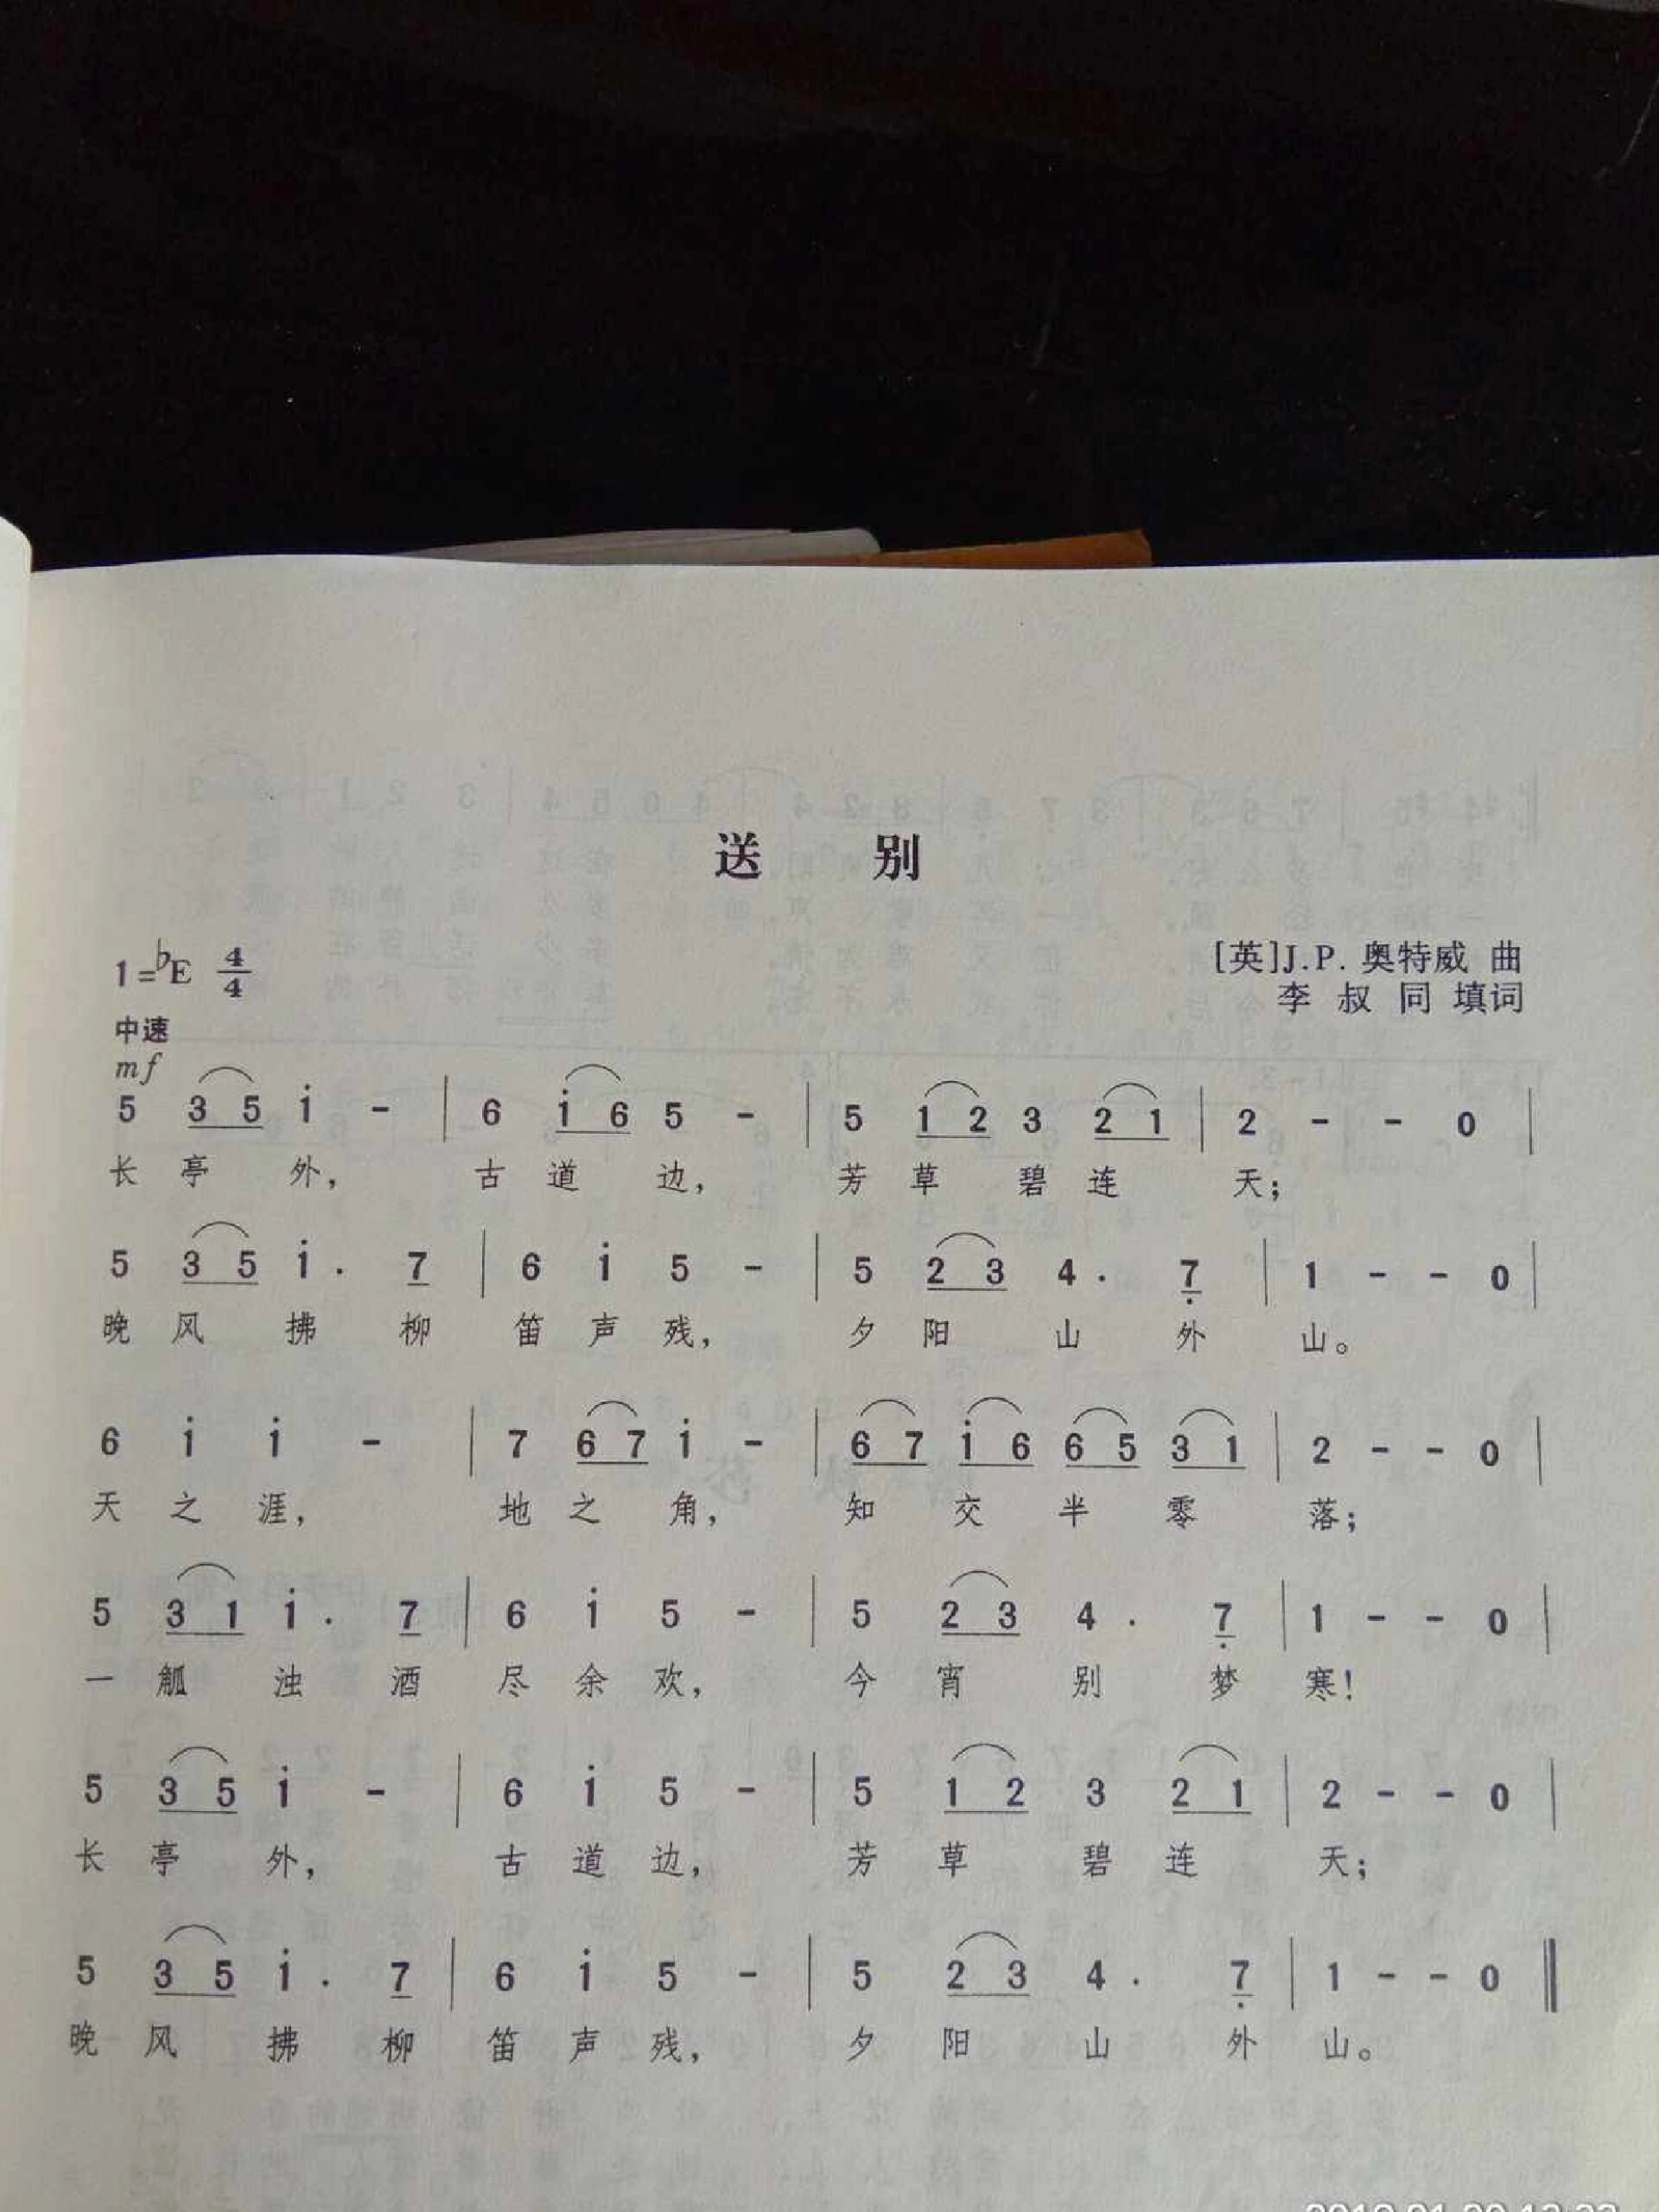 送 别
1=♭E 4/4
[英]J.P. 奥特威 曲
李 叔 同 填词
中速
mf
5 3 5 i - | 6 i 6 5 - | 5 1 2 3 2 1 | 2 - - 0 |
长 亭 外， 古 道 边， 芳 草 碧 连 天；
5 3 5 i . 7 | 6 i 5 - | 5 2 3 4 . 7 | 1 - - 0 |
晚 风 拂 柳 笛 声 残， 夕 阳 山 外 山。
6 i i - | 7 6 7 i - | 6 7 i 6 6 5 3 1 | 2 - - 0 |
天 之 涯， 地 之 角， 知 交 半 零 落；
5 3 1 i . 7 | 6 i 5 - | 5 2 3 4 . 7 | 1 - - 0 |
一 觚 浊 酒 尽 余 欢， 今 宵 别 梦 寒！
5 3 5 i - | 6 i 5 - | 5 1 2 3 2 1 | 2 - - 0 |
长 亭 外， 古 道 边， 芳 草 碧 连 天；
5 3 5 i . 7 | 6 i 5 - | 5 2 3 4 . 7 | 1 - - 0 ‖
晚 风 拂 柳 笛 声 残， 夕 阳 山 外 山。